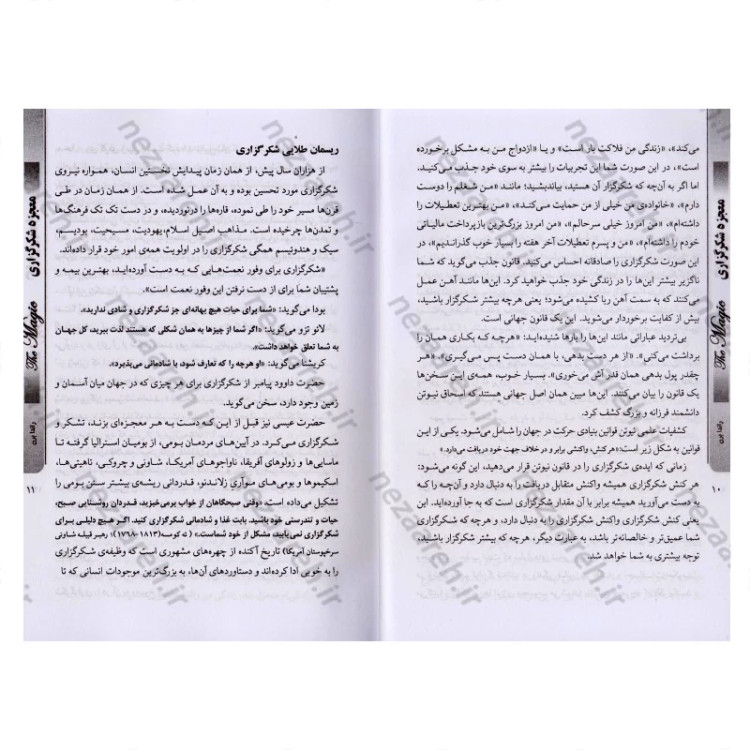 می‌کند»، «زندگی من فلاکت بار است» و یا «ازدواج من به مشکل برخورده
است»، در این صورت شما این تجربیات را بیشتر به سوی خود جذب می‌کنید.
اما اگر به آن‌چه که شکرگزار آن هستید، بیاندیشید؛ مانند «من شغلم را دوست
دارم»، «خانواده‌ی من خیلی از من حمایت می‌کند»، «من بهترین تعطیلات را
داشته‌ام»، «من امروز خیلی سرحالم»، «من امروز بزرگ‌ترین بازپرداخت مالیاتی
خودم را داشته‌ام»، «من و پسرم تعطیلات آخر هفته را بسیار خوب گذراندیم»، در
این صورت شکرگزاری را صادقانه احساس می‌کنید. قانون جذب می‌گوید که شما
ناگزیر بیشتر این‌ها را در زندگی خود جذب خواهید کرد. این‌ها مانند آهن عمل
می‌کنند که به سمت آهن ربا کشیده می‌شود؛ یعنی هرچه بیشتر شکرگزار باشید،
بیش از کفایت برخوردار می‌شوید. این یک قانون جهانی است.
بی‌تردید عباراتی مانند این‌ها را بارها شنیده‌اید: «هرچه که بکاری همان را
برداشت می‌کنی». «از هر دست بدهی، با همان دست پس می‌گیری». «هر
چقدر پول بدهی همان قدر آش می‌خوری». بسیار خوب، همه‌ی این سخن‌ها
یک قانون را بیان می‌کنند. این‌ها مبین همان اصل جهانی هستند که اسحاق نیوتن
دانشمند فرزانه و بزرگ کشف کرد.
کشفیات علمی نیوتن قوانین بنیادی حرکت در جهان را شامل می‌شود. یکی از این
قوانین به شکل زیر است: «هر کنش، واکنشی برابر و در خلاف جهت خود دریافت می‌دارد.»
زمانی که ایده‌ی شکرگزاری را در قانون نیوتن قرار می‌دهید، این گونه می‌شود:
هر کنش شکرگزاری همیشه واکنش متقابل دریافت را به دنبال دارد و آن‌چه را که
به دست می‌آورید همیشه برابر با آن مقدار شکرگزاری است که به جا آورده‌اید. این
یعنی کنش شکرگزاری واکنش شکرگزاری را به دنبال دارد، و هرچه که شکرگزار
شما عمیق‌تر و خالصانه‌تر باشد، به عبارت دیگر، هرچه که بیشتر شکرگزار باشید،
توجه بیشتری به شما خواهد شد.
معجزه شکرگزاری
The Magic
راندا برن
۱۰
ریسمان طلایی شکرگزاری
از هزاران سال پیش، از همان زمان پیدایش نخستین انسان، همواره نیروی
شکرگزاری مورد تحسین بوده و به آن عمل شده است. از همان زمان در طی
قرن‌ها مسیر خود را طی نموده، قاره‌ها را درنوردیده، و در دست تک تک فرهنگ‌ها
و تمدن‌ها چرخیده است. مذاهب اصیل اسلام، یهودیت، مسیحیت، بودیسم،
سیک و هندوئیسم همگی شکرگزاری را در اولویت همه‌ی امور خود قرار داده‌اند.
«شکرگزاری برای وفور نعمت‌هایی که به دست آورده‌اید، بهترین بیمه و
پشتیبان شما برای از دست نرفتن این وفور نعمت است».
بودا می‌گوید: «شما برای حیات هیچ بهانه‌ای جز شکرگزاری و شادی ندارید».
لائو تزو می‌گوید: «اگر شما از چیزها به همان شکلی که هستند لذت ببرید، کل جهان
به شما تعلق خواهد داشت».
کریشنا می‌گوید: «او هرچه را که تعارف شود، با شادمانی می‌پذیرد».
حضرت داوود پیامبر از شکرگزاری برای هر چیزی که در جهان میان آسمان و
زمین وجود دارد، سخن می‌گوید.
حضرت عیسی نیز قبل از این که دست به هر معجزه‌ای بزند، تشکر و
شکرگزاری می‌کرد. در آیین‌های مردمان بومی، از بومیان استرالیا گرفته تا
ماسایی‌ها و زولوهای آفریقا، ناواجوهای آمریکا، شاونی و چروکی، تاهیتی‌ها،
اسکیموها و بومی‌های مـوآری زلاندنو، قدردانی ریشه‌ی بیشتر سنن بومی را
تشکیل می‌داده است. «وقتی صبحگاهان از خواب بومی‌خیزید، قدردان روشنایی صبح،
حیات و تندرستی خود باشید. بابت غذا و شادمانی شکرگزاری کنید. اگر هیچ دلیلی برای
شکرگزاری نمی‌یابید، مشکل از خود شماست.» (ته کومسه(۱۸۱۳-۱۷۶۸)؛ رهبر قبیله شاونی
سرخپوستان آمریکا) تاریخ آکنده از چهره‌های مشهوری است که وظیفه‌ی شکرگزاری
را به خوبی ادا کرده‌اند و دستاوردهای آن‌ها، به بزرگ‌ترین موجودات انسانی که تا
معجزه شکرگزاری
The Magic
راندا برن
۱۱
nezaareh.ir